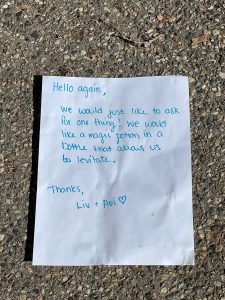 Hello again,
We would just like to ask
for one thing! We would
like a magic potion in a
bottle that allows us
to levitate.
Thanks,
Liv + Avi ♡